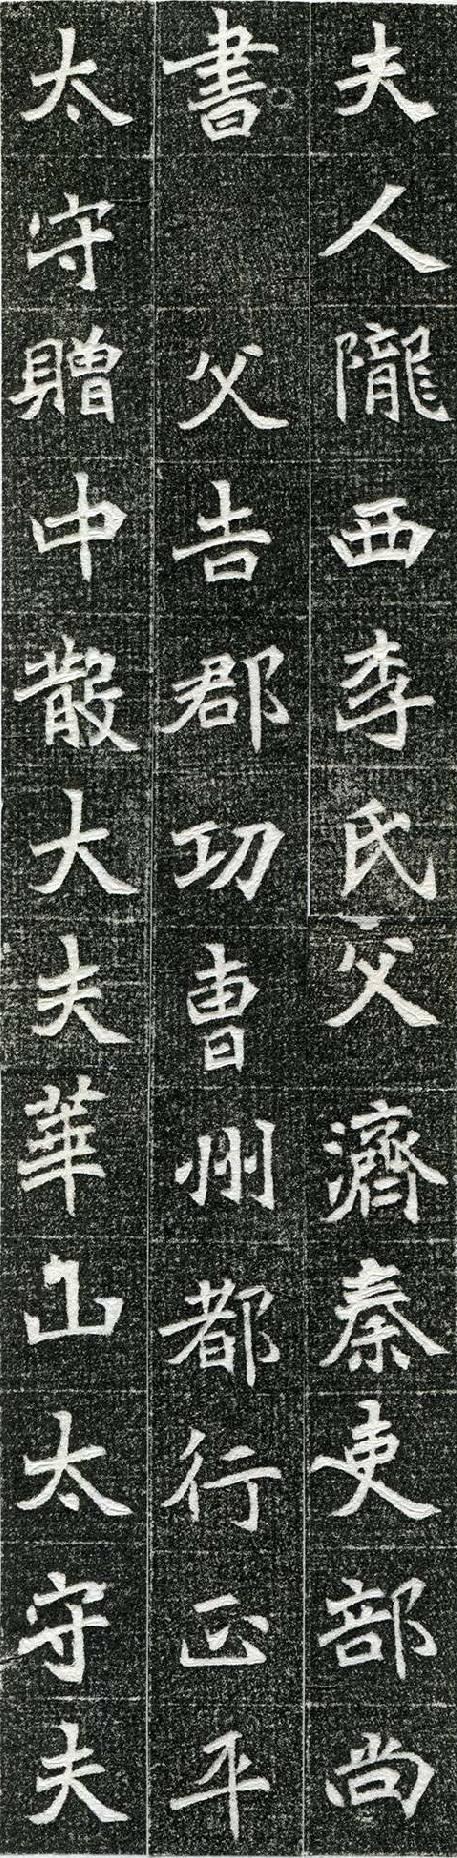 夫人隴西李氏父濟秦吏部尚
書 父告郡功曹州都行正平
太守贈中散大夫華山太守夫